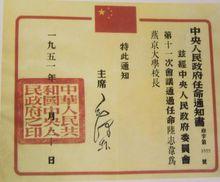 中央人民政府任命通知書
府字第
茲經中央人民政府委員會
第十一次會議通過任命陸志韋爲
燕京大學校長
特此通知
主席
毛澤東
一九五一年
月
十日
中華人民共
和國中央人
民政府之印